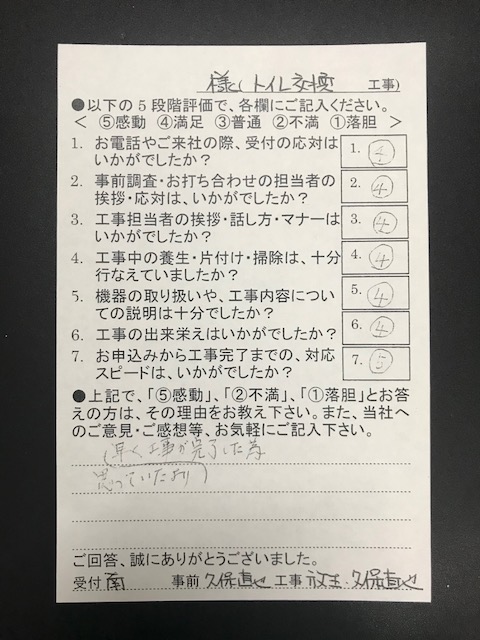 様（トイレ交換 工事）
●以下の５段階評価で、各欄にご記入ください。
＜ ⑤感動 ④満足 ③普通 ②不満 ①落胆 ＞
1. お電話やご来社の際、受付の応対は
いかがでしたか？
1. ④
2. 事前調査・お打ち合わせの担当者の
挨拶・応対は、いかがでしたか？
2. ④
3. 工事担当者の挨拶・話し方・マナーは
いかがでしたか？
3. ④
4. 工事中の養生・片付け・掃除は、十分
行なえていましたか？
4. ④
5. 機器の取り扱いや、工事内容につい
ての説明は十分でしたか？
5. ④
6. 工事の出来栄えはいかがでしたか？
6. ④
7. お申込みから工事完了までの、対応
スピードは、いかがでしたか？
7. ⑤
●上記で、「⑤感動」、「②不満」、「①落胆」とお答
えの方は、その理由をお教え下さい。また、当社へ
のご意見・ご感想等、お気軽にご記入下さい。
（早く工事が完了した為
思っていたより）
ご回答、誠にありがとうございました。
受付 南 事前 久保直也 工事 ・久保直也